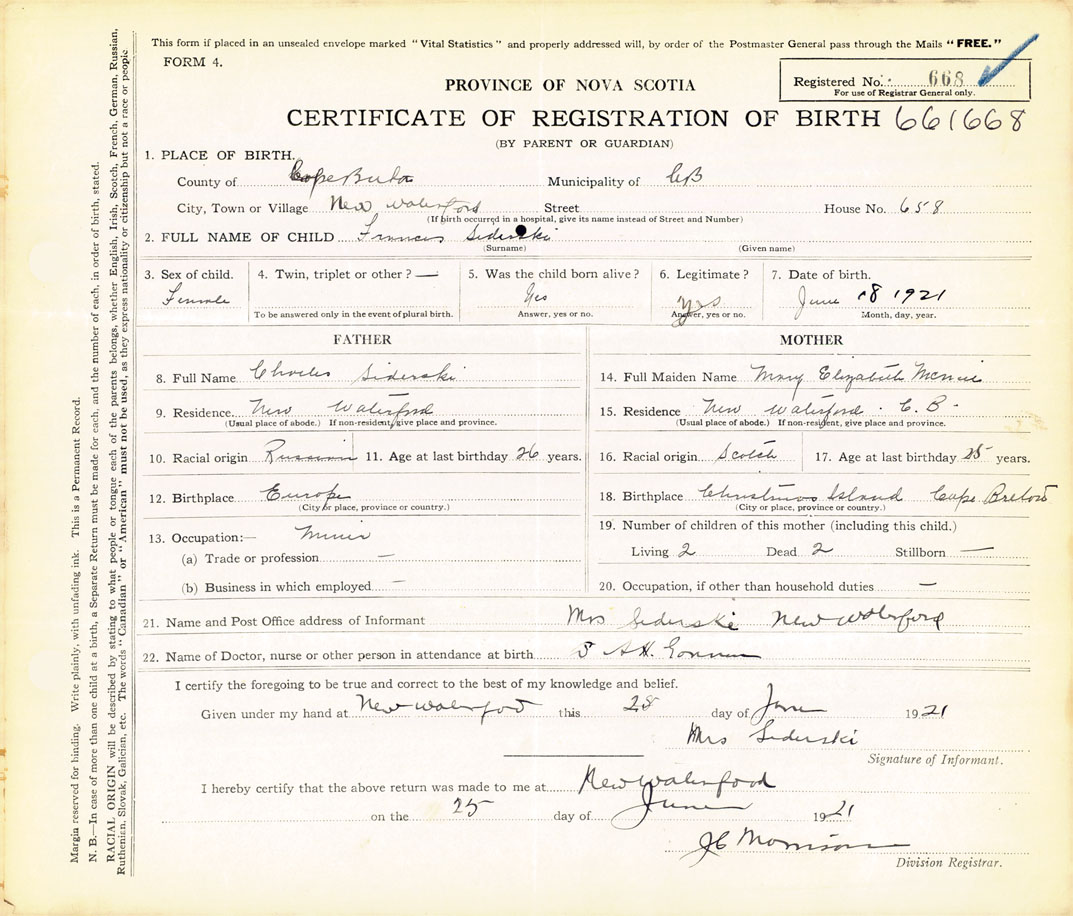 This form if placed in an unsealed envelope marked "Vital Statistics" and properly addressed will, by order of the Postmaster General pass through the Mails "FREE."
FORM 4.
Registered No. 668
For use of Registrar General only.
PROVINCE OF NOVA SCOTIA
CERTIFICATE OF REGISTRATION OF BIRTH 661668
(BY PARENT OR GUARDIAN)
1. PLACE OF BIRTH.
County of Cape Municipality of CB
City, Town or Village New Waterford Street House No. 658
(If birth occurred in a hospital, give its name instead of Street and Number)
2. FULL NAME OF CHILD Frances Siderski
(Surname) (Given name)
3. Sex of child. 4. Twin, triplet or other? — 5. Was the child born alive? 6. Legitimate? 7. Date of birth.
Female Yes Yes June 18 1921
To be answered only in the event of plural birth. Answer, yes or no. Answer, yes or no. Month, day, year.
FATHER
8. Full Name Charles Siderski
9. Residence New Waterford
(Usual place of abode.) If non-resident, give place and province.
10. Racial origin Russian 11. Age at last birthday 26 years.
12. Birthplace Europe
(City or place, province or country.)
13. Occupation:— Miner
(a) Trade or profession —
(b) Business in which employed —
MOTHER
14. Full Maiden Name Mary Elizabeth
15. Residence New Waterford C.B.
(Usual place of abode.) If non-resident, give place and province.
16. Racial origin Scotch 17. Age at last birthday 25 years.
18. Birthplace Christmas Island Cape Breton
(City or place, province or country.)
19. Number of children of this mother (including this child.)
Living 2 Dead 2 Stillborn —
20. Occupation, if other than household duties —
21. Name and Post Office address of Informant Mrs Siderski New Waterford
22. Name of Doctor, nurse or other person in attendance at birth
I certify the foregoing to be true and correct to the best of my knowledge and belief.
Given under my hand at New Waterford this 28 day of June 1921
Mrs Siderski
Signature of Informant.
I hereby certify that the above return was made to me at New Waterford
on the 25 day of June 1921
JC Morrison
Division Registrar.
Margin reserved for binding. Write plainly, with unfading ink. This is a Permanent Record.
N. B.—In case of more than one child at a birth, a Separate Return must be made for each, and the number of each, in order of birth, stated.
RACIAL ORIGIN will be described by stating to what people or tongue each of the parents belongs, whether English, Irish, Scotch, French, German, Russian,
Ruthenian, Slovak, Galician, etc. The words "Canadian" or "American" must not be used, as they express nationality or citizenship but not a race or people